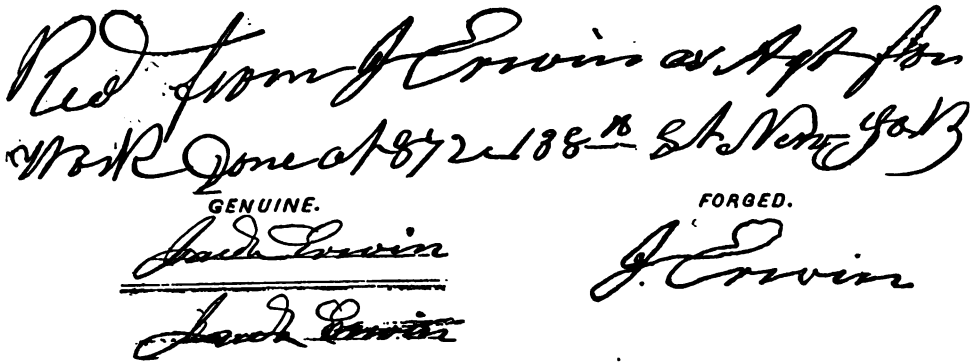 Recd from J Erwin as Agt for
Work Done at 872 138th St New York
GENUINE. FORGED.
Jacob Erwin
J. Erwin
Jacob Erwin